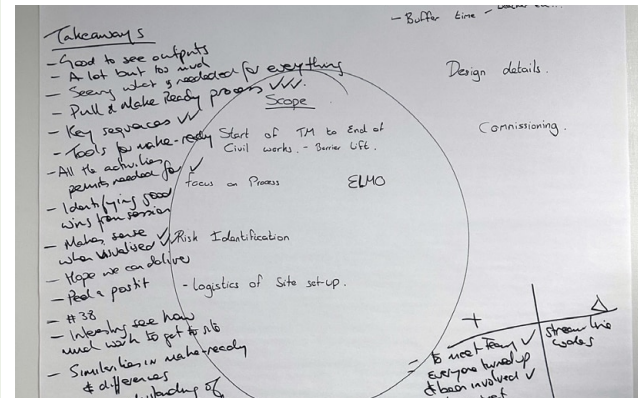 Takeaways
- Good to see outputs
- A lot but too much
- Seeing what is needed for everything
- Pull & Make Ready process ✓✓✓
- Key sequences ✓✓
- Tools for make-ready
- All the activities
permits needed for ✓
- Identifying good
wins from session
- Makes sense ✓
when visualised ✓✓
- Hope we can deliver
- Peel a postit
- #38
- Interesting see how
much work to get to site
- Similarities in make-ready
& differences
of
Scope
Start of TM to End of
Civil works. - Barrier Lift.
Focus on Process
ELMO
Risk Identification
- Logistics of Site set-up.
- Buffer time -
Design details.
Commissioning.
+
- To meet Team ✓
everyone turned up
& been involved ✓
Δ
streamline